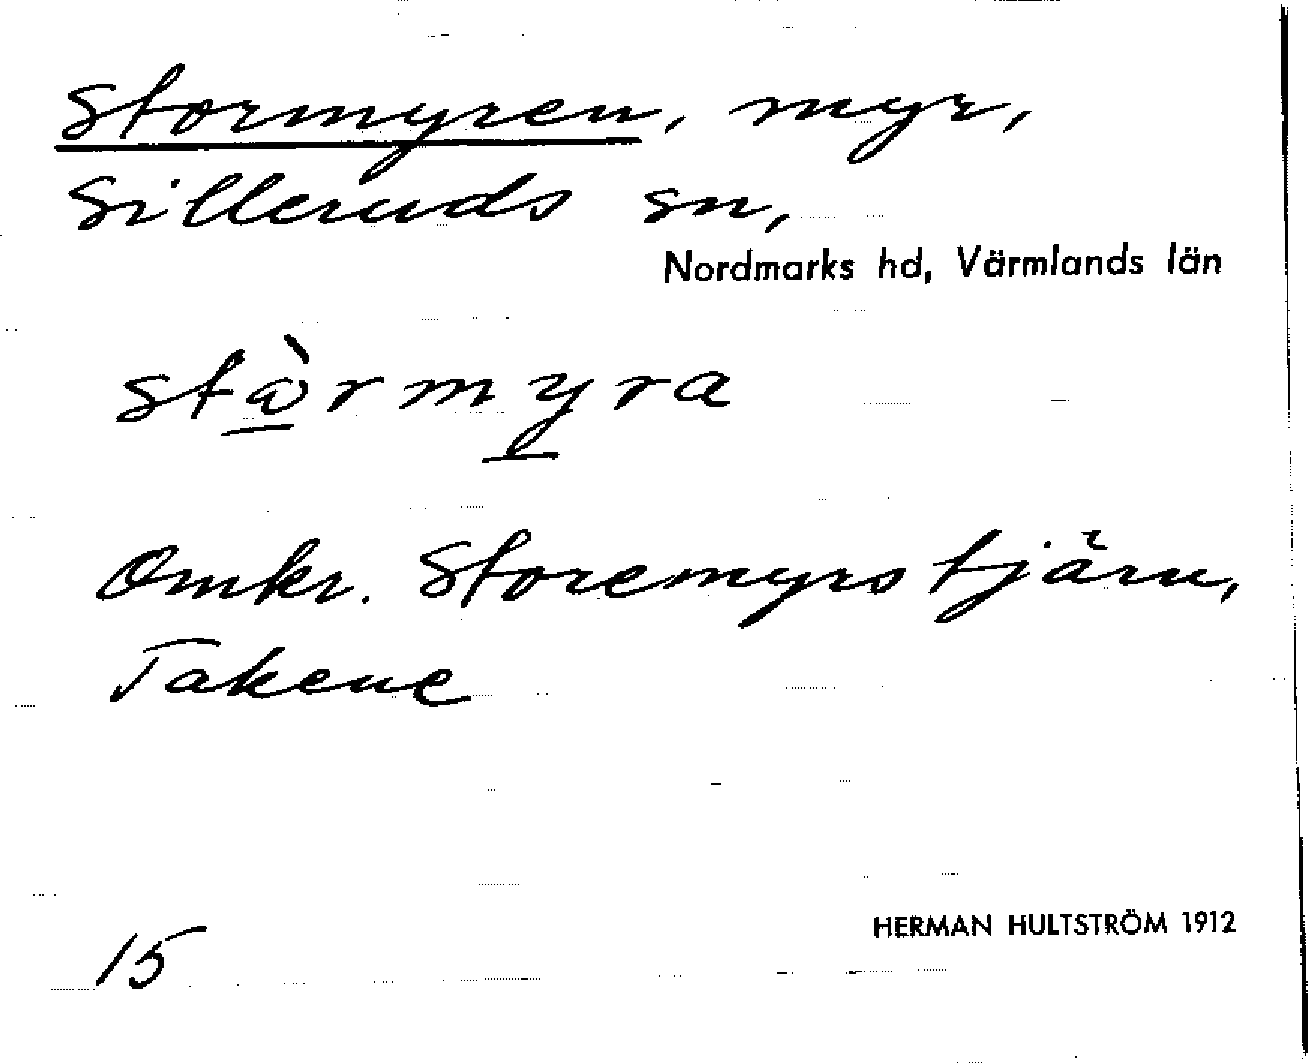 Stormyren, myr,
Silleruds sn,
Nordmarks hd, Värmlands län
stⱺ̀rmyra
Omkr. Storemyrs tjärn,
Takene
15
HERMAN HULTSTRÖM 1912